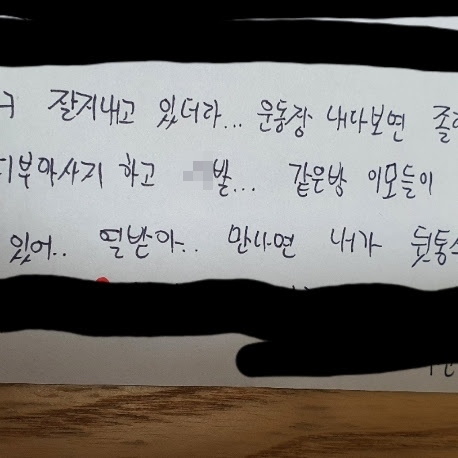 구 잘지내고 있더라... 운동장 내다보면 졸
디부아사지 하고 발... 같은방 이모들이
있어.. 열받아.. 만나면 내가 뒷통수